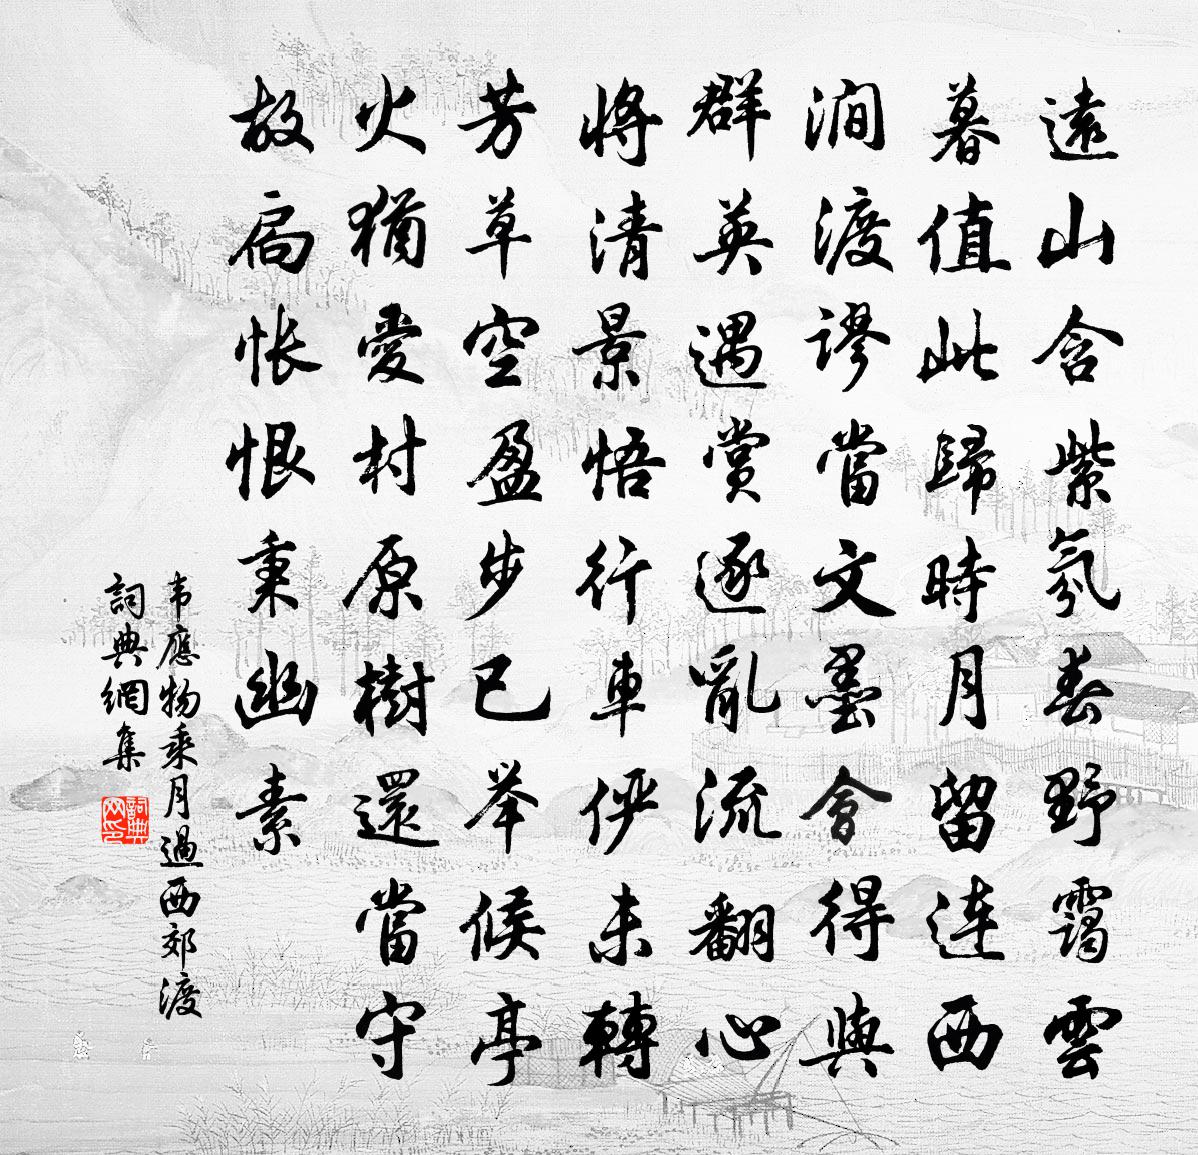 遠山含紫氛春野靄雲
暮值此歸時月留連西
澗渡謬當文墨會得與
群英遇賞逐亂流翻心
將清景悟行車儼未轉
芳草空盈步已举候亭
火猶愛村原樹還當守
故扃悵恨秉幽素
韦應物乘月過西郊渡
詞典網集
詞典网印